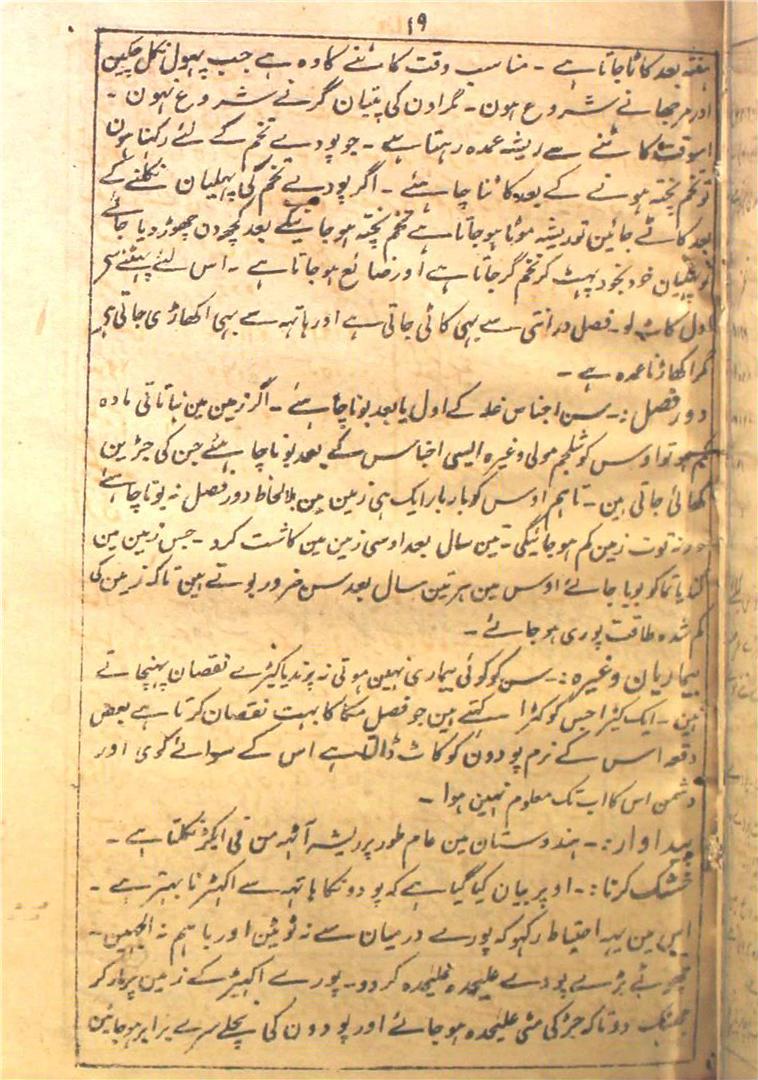 ۱۹
ہفتہ بعد کاٹا جاتا ہے ۔ مناسب وقت کاٹنے کا وہ ہے جب پہول نکل چکین
اور مرجھانے شروع ہون ۔ گر اون کی پتیان گرنے شروع نہون ۔
اسوقت کاٹنے سے ریشہ عمدہ رہتا ہے ۔ جو پودے تخم کے لئے رکہنا ہون
تو تخم پختہ ہونے کے بعد کاٹنا چاہئے ۔ اگر پودے تخم کی پہلیان نکلنے کے
بعد کاٹے جائین تو ریشہ موٹا ہو جاتا ہے تخم پختہ ہو جانیکے بعد کچہ دن چھوڑ دیا جائے
تو پہلیان خود بخود پہٹ کر تخم گر جاتا ہے اور ضائع ہو جاتا ہے ۔ اس لئے پہٹنے سے
اول کاٹ لو ۔ فصل درانتی سے بہی کاٹی جاتی ہے اور ہاتہہ سے بہی اکھاڑی جاتی ہے
مگر اکھاڑنا عمدہ ہے ۔
دور فصل :۔ سن اجناس غلہ کے اول یا بعد بونا چاہئے ۔ اگر زمین مین نباتاتی مادہ
کم ہو تو اوس کو شلجم مولی وغیرہ ایسی اجناس کے بعد بونا چاہئے جن کی جڑین
کھائی جاتی ہین ۔ تاہم اوس کو بار بار ایک ہی زمین مین بلا لحاظ دور فصل نہ بونا چاہئے
ورنہ قوت زمین کم ہو جائیگی ۔ تین سال بعد اوسی زمین مین کاشت کرو ۔ جس زمین مین
گنا یا تماکو بویا جائے اوس مین ہر تین سال بعد سن ضرور بوتے ہین تاکہ زمین کی
کم شدہ طاقت پوری ہو جائے ۔
بیماریان وغیرہ :۔ سن کو کوئی بیماری نہین ہوتی نہ پرند یا کیڑے نقصان پہنچاتے
ہین ۔ ایک کیڑا جس کو کترا کہتے ہین جو فصل مکا کا بہت نقصان کرتا ہے بعض
دفعہ اس کے نرم پودون کو کاٹ ڈالتا ہے اس کے سوائے کوئی اور
دشمن اس کا اب تک معلوم نہین ہوا ۔
پیداوار :۔ ہندوستان مین عام طور پر ریشہ آٹہہ من فی ایکڑ نکلتا ہے ۔
خشک کرنا :۔ اوپر بیان کیا گیا ہے کہ پودونکا ہاتہہ سے اکہیڑنا بہتر ہے ۔
اس مین یہہ احتیاط رکہو کہ پودے درمیان سے نہ ٹوٹین اور باہم نہ الجہین ۔
چھوٹے بڑے پودے علیحدہ علیحدہ کر دو ۔ پودے اکہیڑ کے زمین پر مار کر
جھٹک دو تاکہ جڑ کی مٹی علیحدہ ہو جائے اور پودون کی نچلے سرے برابر ہو جائین